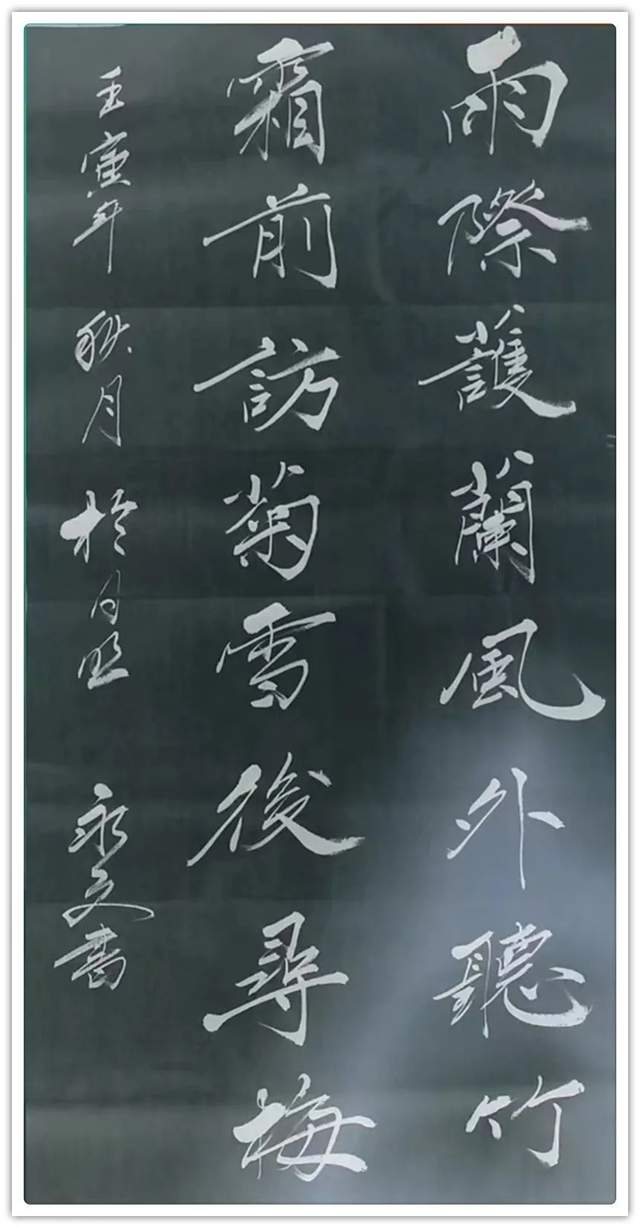 雨際護蘭風外聽竹
霜前訪菊雪後尋梅
壬寅年秋月於日照永文書